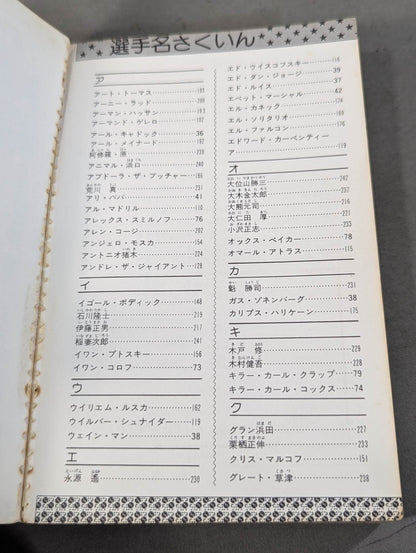 選手名さくいん
ア
アート・トーマス
アーニー・ラッド
アーマン・ハッサン
アーマンド・ゲレロ
アール・キャドック 36
アール・メイナード
阿修羅・原
アニマル・浜口 240
アブドーラ・ザ・ブッチャー
荒川 真 231
アリ・ババ 41
アル・マドリル 110
アレックス・スミルノフ 76
アレン・コージ
アンジェロ・モスカ 154
アントニオ猪木
アンドレ・ザ・ジャイアント 128
イ
イゴール・ボディック 148
石川隆士 219
伊藤正男 217
稲妻次郎 241
イワン・プトスキー 156
イワン・コロフ 73
ウ
ウイリエム・ルスカ 162
ウイルバー・シュナイダー 119
ウェイン・マン 38
エ
永源 遙 230
エド・ウイスコフスキー 116
エド・ダン・ジョージ 39
エド・ルイス 37
エベット・マーシャル 42
エル・カネック 174
エル・ソリタリオ
エル・ファルコン
エドワード・カーペンティー
ア
オ
大位山勝三 242
大木金太郎 237
大熊元司
大仁田 厚 241
小沢正志 231
オックス・ベイカー 78
オマール・アトラス 115
カ
魁 勝司
ガス・ゾネンバーグ 38
カリプス・ハリケーン 175
キ
木戸 修 229
木村健吾 228
キラー・カール・クラップ 79
キラー・カール・コックス 74
ク
グラン浜田 227
栗栖正伸 233
クリス・マルコフ 151
グレート・草津 238